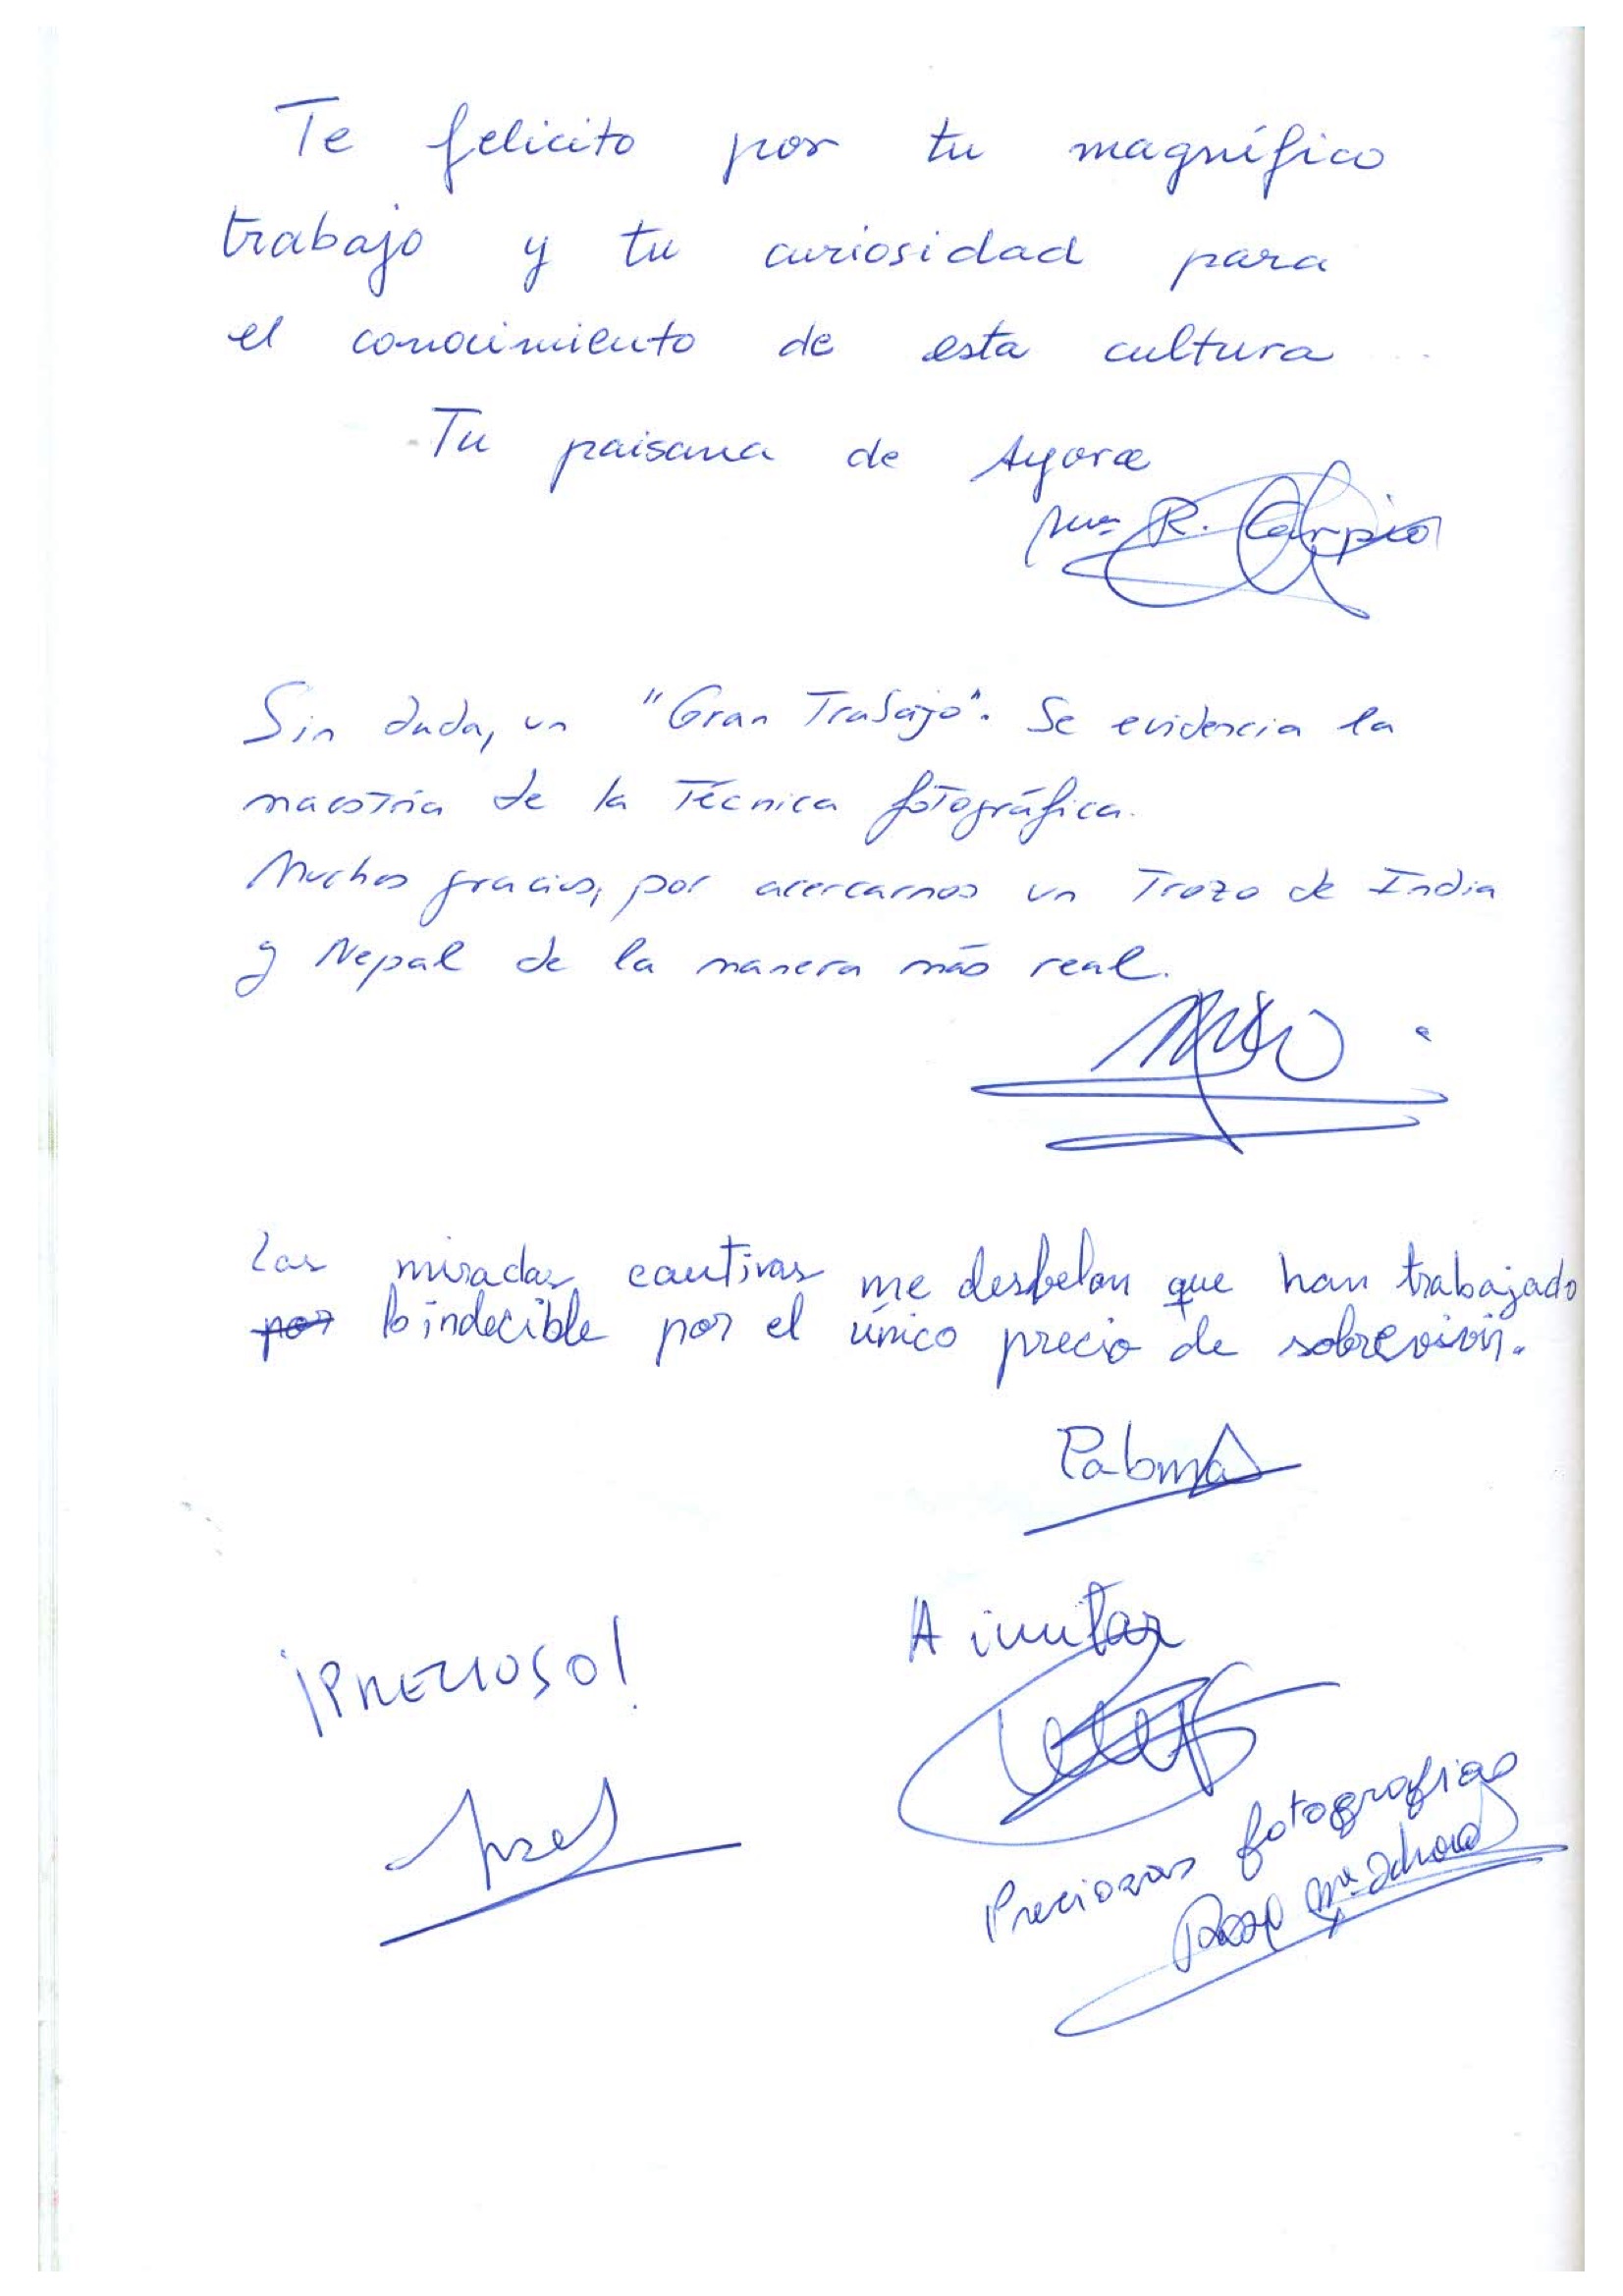 Te felicito por tu magnífico
trabajo y tu curiosidad para
el conocimiento de esta cultura
Tu paisana de Ayora
R. Carpio
Sin duda, un "Gran Trabajo". Se evidencia la
maestría de la Técnica fotográfica.
Muchas gracias, por acercarnos un Trozo de India
y Nepal de la manera más real.
Las miradas cautivas me desbelan que han trabajado
por lo indecible por el único precio de sobrevivir.
Paloma
¡PRECIOSO!
A imitar
Preciosas fotografías
Rosa Mª